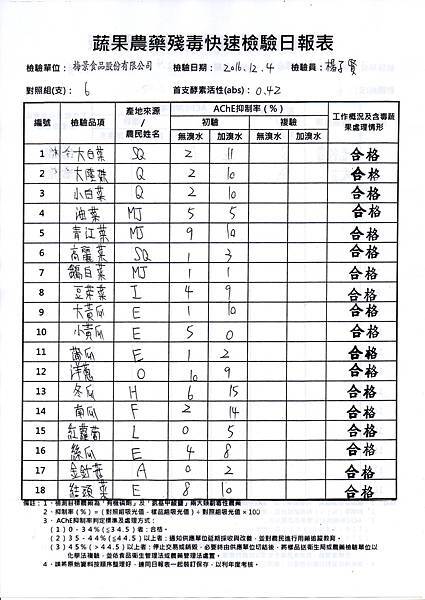 蔬果農藥殘毒快速檢驗日報表
檢驗單位： 梅景食品股份有限公司 檢驗日期： 2016.12.4 檢驗員： 楊子賢
對照組(支)： 6 首支酵素活性(abs)： 0.42
編號 檢驗品項 產地來源/農民姓名 AChE抑制率(%) 工作概況及含毒蔬果處理情形
初驗 複驗
無溴水 加溴水 無溴水 加溴水
1 大白菜 SQ 2 11 合格
2 大陸妹 Q 2 10 合格
3 小白菜 Q 2 10 合格
4 油菜 MJ 5 5 合格
5 青江菜 MJ 9 10 合格
6 高麗菜 SQ 1 3 合格
7 鵝白菜 MJ 1 1 合格
8 豆芽菜 I 4 9 合格
9 大黃瓜 E 1 10 合格
10 小黃瓜 E 5 0 合格
11 蒲瓜 E 1 2 合格
12 洋蔥 O 10 9 合格
13 冬瓜 H 6 15 合格
14 南瓜 F 2 14 合格
15 紅蘿蔔 L 0 5 合格
16 絲瓜 E 4 8 合格
17 金針菇 A 0 2 合格
18 結頭菜 E 8 10 合格
備註：1．檢測目標農藥為「有機磷劑」及「氨基甲酸鹽」兩大類劇毒性農藥
2．抑制率(%)=(對照組吸光值-樣品組吸光值)÷對照組吸光值×100
3．AChE抑制率判定標準及處理方式：
(1)0-34%(≦34.5)者：合格。
(2)35-44%(≦44.5)以上者：通知供應單位延期採收與改善，並對農民進行用藥追蹤教育。
(3)45%(>44.5)以上者：停止交易或銷毀，必要時由供應單位切結後，將樣品送衛生局或農藥檢驗單位以
化學法複驗，並依食品衛生管理法或農藥管理法處置。
4．請將原始資料按順序整理好，連同日報表一起裝訂保存，以利年度考核。